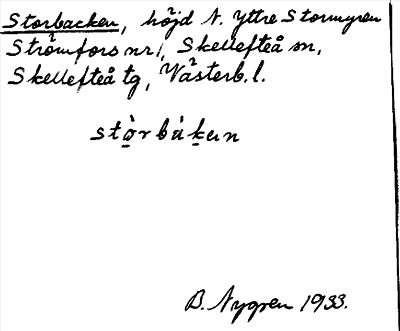 Storbacken, höjd N. Yttre Stormyren
Strömfors nr 1, Skellefteå sn,
Skellefteå tg, Västerb. l.
stòrbàkən
B. Nygren 1933.